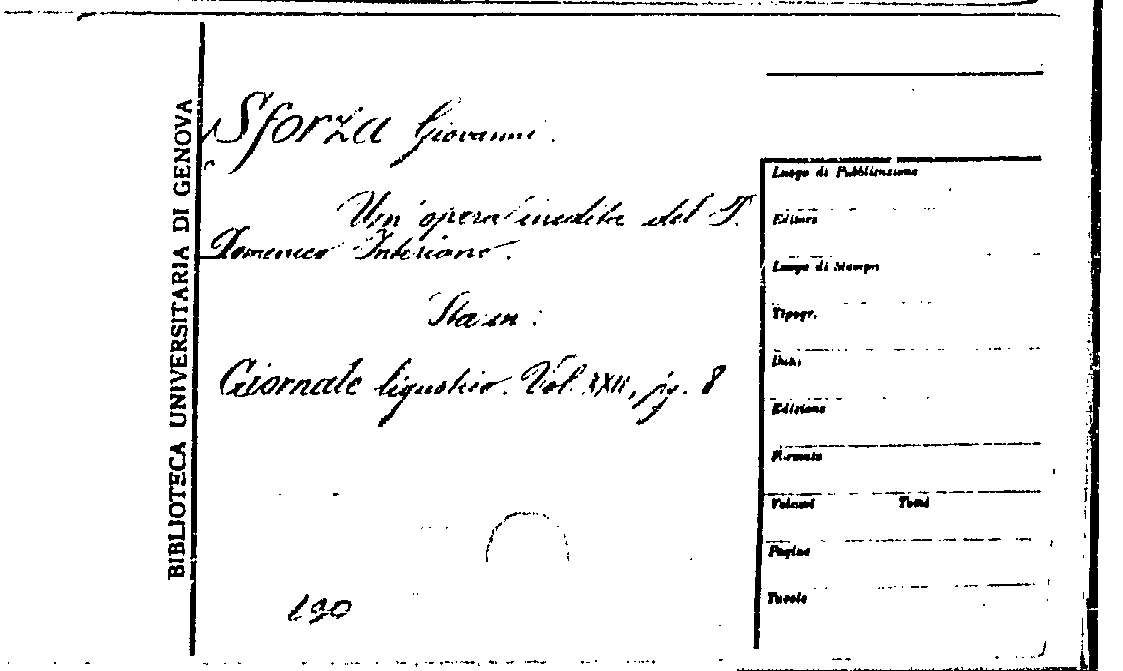 BIBLIOTECA UNIVERSITARIA DI GENOVA
Sforza Giovanni.
Un' opera inedita del P.
Domenico Interiano.
Sta in:
Giornale ligustico. Vol. XXII, pg. 8
190
Luogo di Pubblicazione
Editore
Luogo di Stampa
Tipogr.
Data
Edizione
Formato
Volumi Tomi
Pagine
Tavole